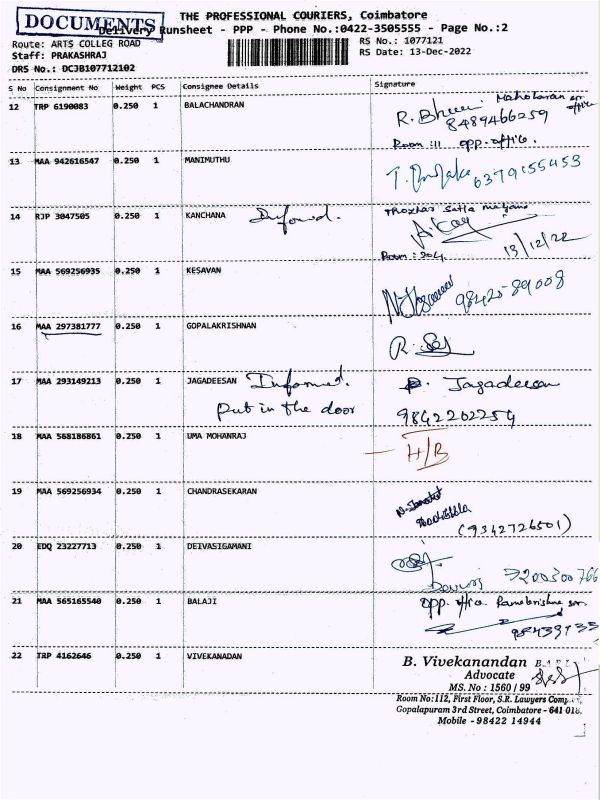 DOCUMENTS
THE PROFESSIONAL COURIERS, Coimbatore
Delivery Runsheet - PPP - Phone No.:0422-3505555 - Page No.:2
Route: ARTS COLLEG ROAD
RS No.: 1077121
Staff: PRAKASHRAJ
RS Date: 13-Dec-2022
DRS No.: DCJB107712102
S No Consignment No Weight PCS Consignee Details Signature
12 TRP 6190083 0.250 1 BALACHANDRAN
8489466259
Room: 111 opp. office.
13 MAA 942616547 0.250 1 MANIMUTHU
6379155453
14 RJP 3047505 0.250 1 KANCHANA Informed.
13/12/22
Room: 204
15 MAA 569256935 0.250 1 KESAVAN
98425-89008
16 MAA 297381777 0.250 1 GOPALAKRISHNAN
17 MAA 293149213 0.250 1 JAGADEESAN Informed. P. Jagadeesan
Put in the door 9842202254
18 MAA 568186861 0.250 1 UMA MOHANRAJ
H/B
19 MAA 569256934 0.250 1 CHANDRASEKARAN
(9342726501)
20 EDQ 23227713 0.250 1 DEIVASIGAMANI
7200300766
21 MAA 565165540 0.250 1 BALAJI opp. office.
22 TRP 4162646 0.250 1 VIVEKANADAN
B. Vivekanandan
Advocate
MS. No : 1560 / 99
Room No:112, First Floor, S.R. Lawyers
Gopalapuram 3rd Street, Coimbatore - 641 018.
Mobile - 98422 14944